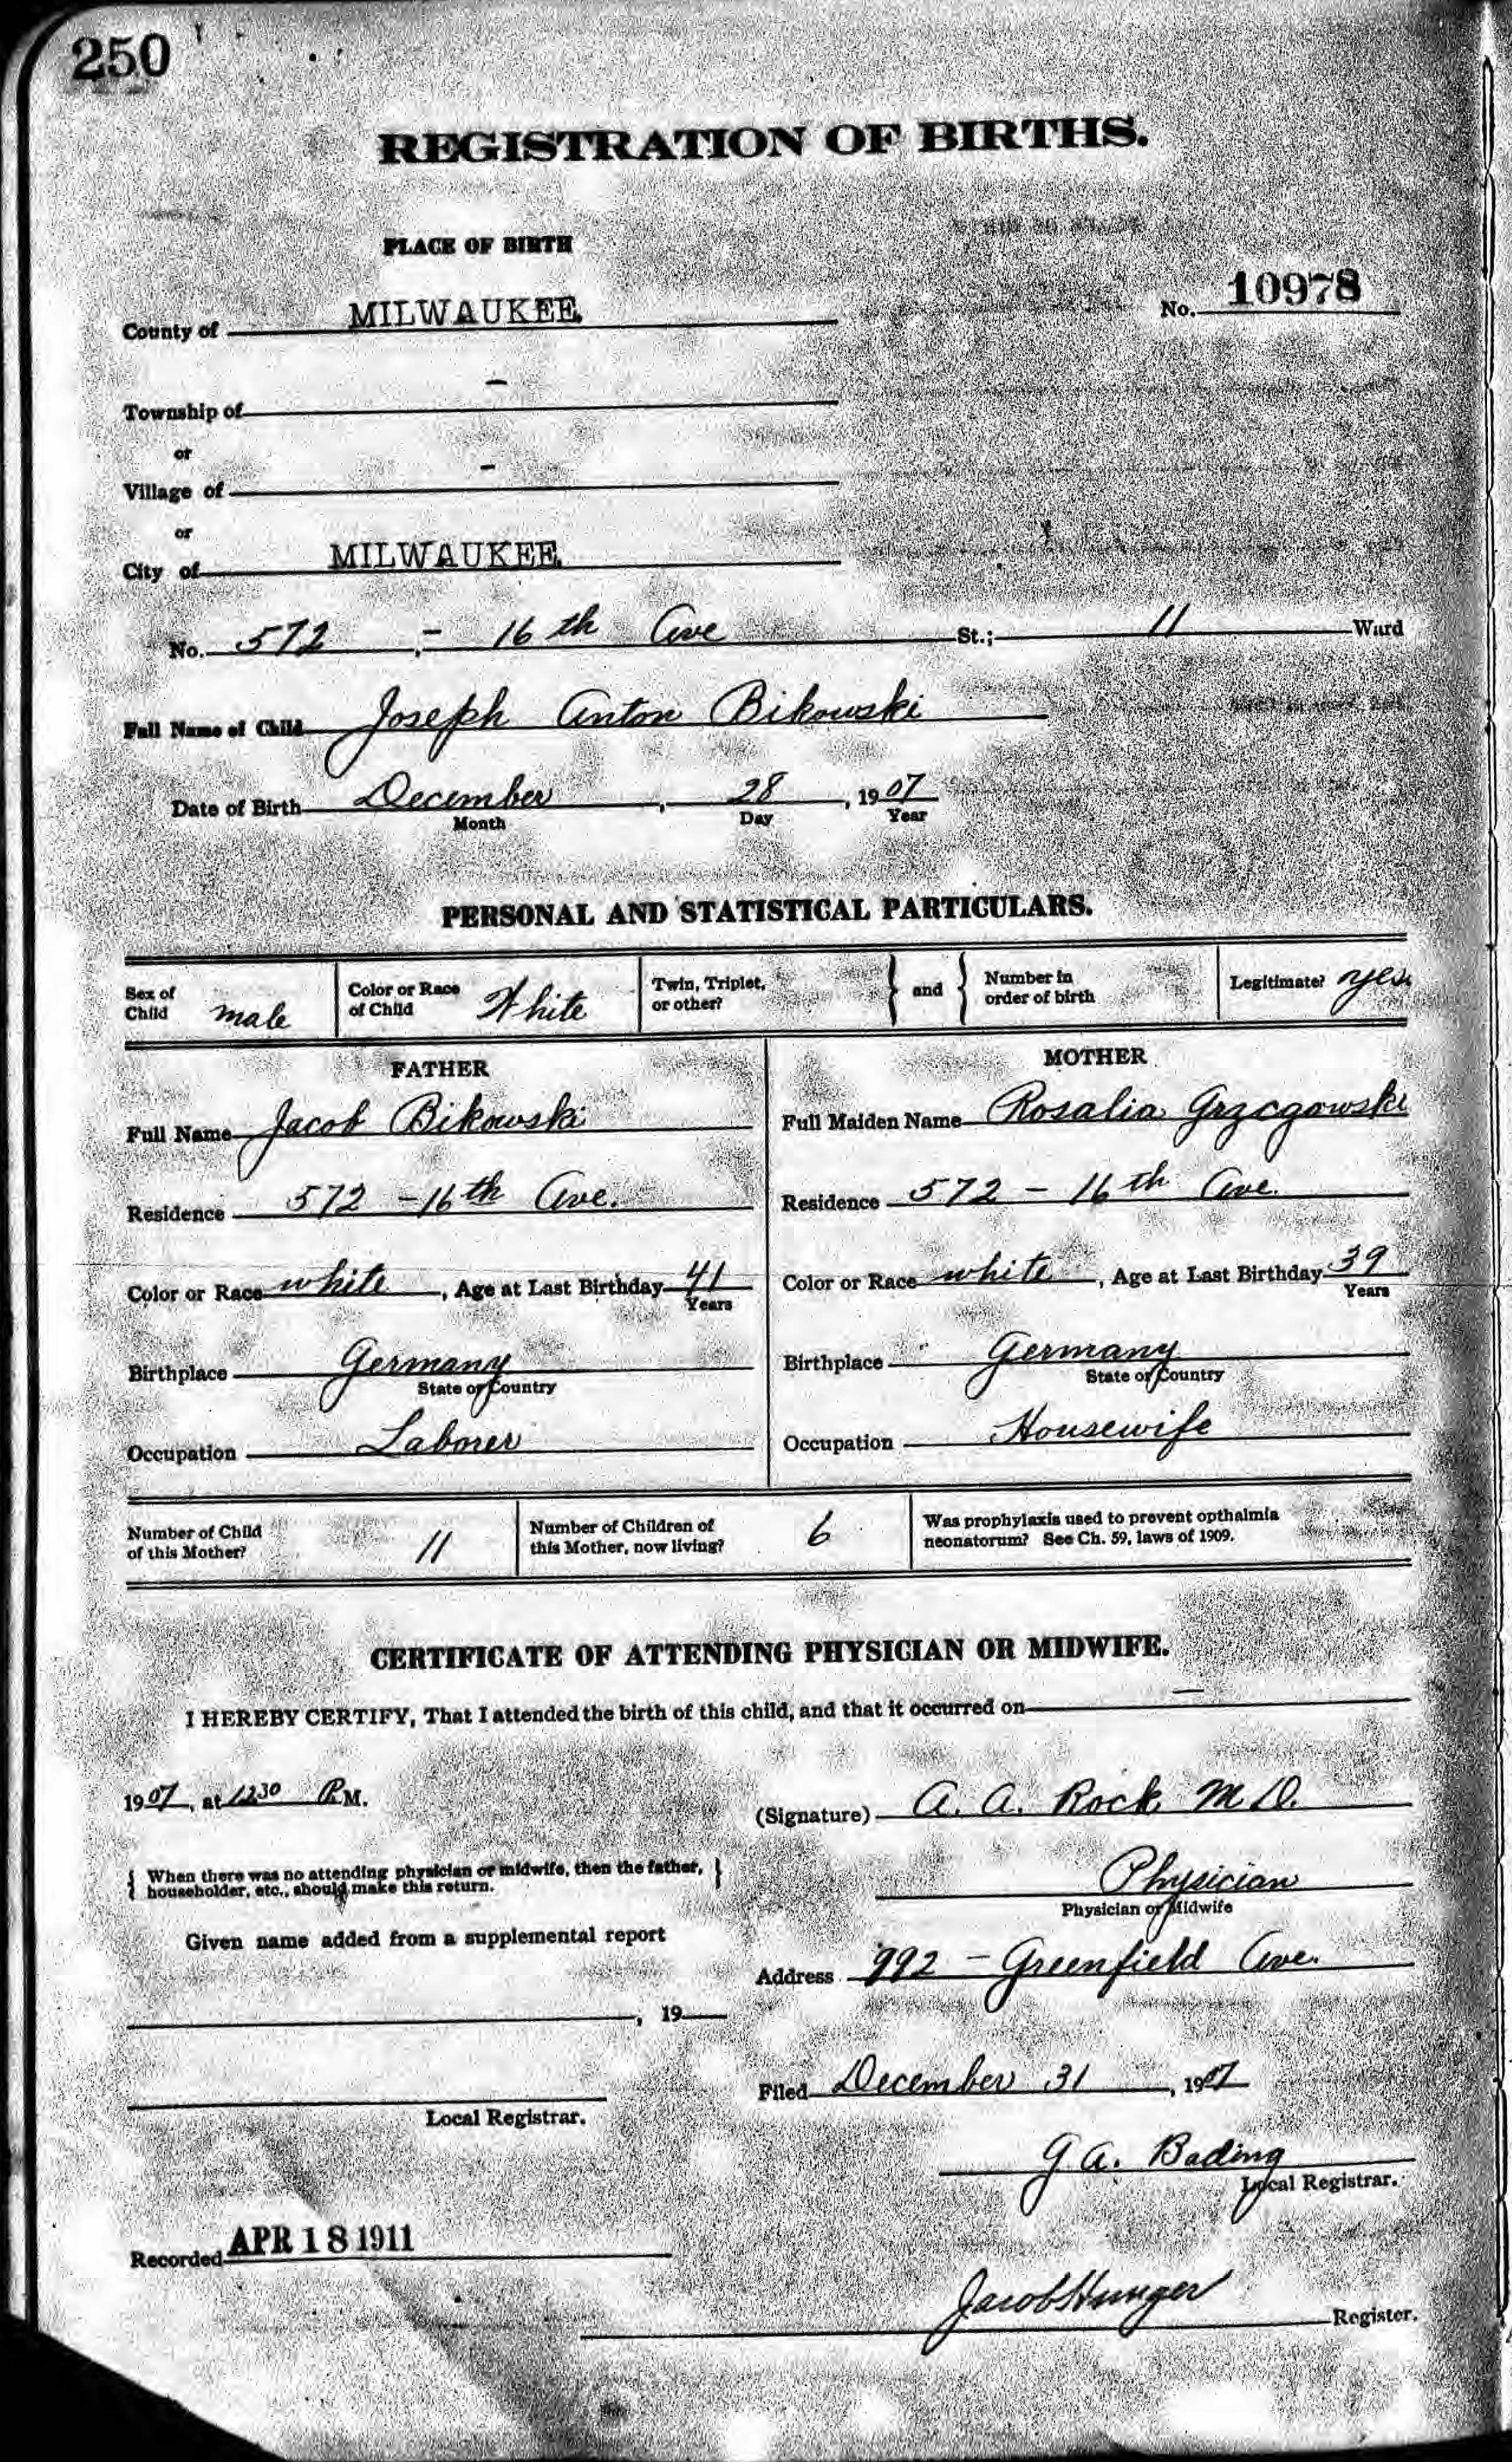 250
REGISTRATION OF BIRTHS.
PLACE OF BIRTH
No. 10978
County of MILWAUKEE.
Township of -
or
Village of -
or
City of MILWAUKEE.
No. 572 - 16th Ave St.; 11 Ward
Full Name of Child Joseph Anton Bikowski
Date of Birth December, 28, 1907
Month Day Year
PERSONAL AND STATISTICAL PARTICULARS.
Sex of Child male Color or Race of Child White Twin, Triplet, or other? } and { Number in order of birth Legitimate? yes.
FATHER
Full Name Jacob Bikowski
Residence 572 - 16th Ave.
Color or Race white, Age at Last Birthday 41
Years
Birthplace Germany
State or Country
Occupation Laborer
MOTHER
Full Maiden Name Rosalia Grzcgowski
Residence 572 - 16th Ave.
Color or Race white, Age at Last Birthday 39
Years
Birthplace Germany
State or Country
Occupation Housewife
Number of Child of this Mother? 11 Number of Children of this Mother, now living? 6 Was prophylaxis used to prevent opthalmia neonatorum? See Ch. 59, laws of 1909.
CERTIFICATE OF ATTENDING PHYSICIAN OR MIDWIFE.
I HEREBY CERTIFY, That I attended the birth of this child, and that it occurred on -
1907, at 1230 P.M.
(Signature) A. A. Rock M.D.
{ When there was no attending physician or midwife, then the father, householder, etc., should make this return. }
Physician
Physician or Midwife
Given name added from a supplemental report
Address 992 - Greenfield Ave.
, 19
Filed December 31, 1907
Local Registrar.
G. A. Bading
Local Registrar.
Recorded APR 18 1911
Jacob Hunger
Register.